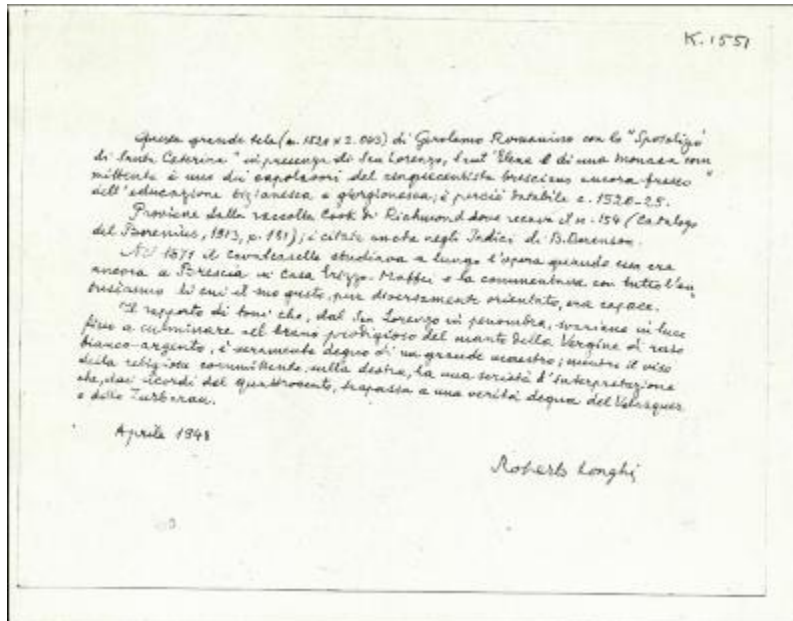 K.1551
Questa grande tela (m. 1521 x 2.003) di Girolamo Romanino con lo "Sposalizio
di Santa Caterina" in presenza di San Lorenzo, Sant'Elena e di una monaca com
mittente è uno dei capolavori del cinquecentista bresciano ancora fresco
dell'educazione tizianesca e giorgionesca; è perciò databile c. 1520-25.
Proviene dalla raccolta Cook di Richmond dove recava il n. 154 (Catalogo
del Borenius, 1913, p. 181); è citata anche negli Indici di B. Berenson.
Nel 1871 il Cavalcaselle studiava a lungo l'opera quando essa era
ancora a Brescia in Casa Erizzo-Maffei e la commentava con tutto l'en
tusiasmo di cui il suo gusto, pur diversamente orientato, era capace.
Il rapporto di toni che, dal San Lorenzo in penombra, svariano in luce
fino a culminare nel brano prodigioso del manto della Vergine di raso
bianco-argento, è veramente degno di un grande maestro; mentre il viso
della religiosa committente, sulla destra, ha una serietà d'interpretazione
che, dai ricordi del quattrocento, trapassa a una verità degna del Velasquez
e dello Zurbaran.
Aprile 1948
Roberto Longhi